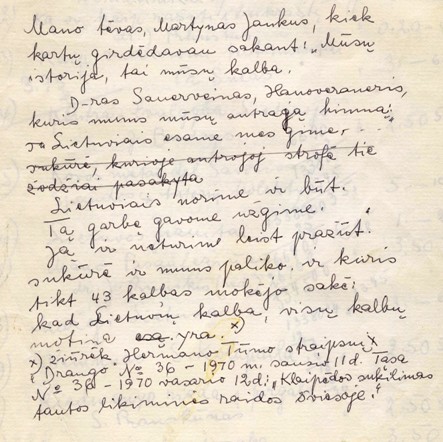 Mano tėvas, Martynas Jankus, kiek
kartų girdėdavau sakant: „Mūsų
istorija, tai mūsų kalba.
D-ras Sauerveinas, Hanoveraneris,
kuris mums mūsų antrąją himną:
„Lietuviais esame mes gimę,
sukūrė, kurioje antrojoj strofa tie
žodžiai pasakyta
Lietuviais norime ir būt.
Tą garbę gavome užgimę.
Ją ir neturime leist pražūt."
sukūrė ir mums paliko, ir kuris
tikt 43 kalbas mokėjo sakė:
kad Lietuvių kalba visų kalbų
motina esą yra. x)
x) žiūrėk, Hermano Tūmo straipsnį x
„Draugo" № 36 - 1970 m. sausio 11 d. Tąsa
№ 36 - 1970 vasario 12 d: „Klaipėdos sukilimas
tautos likiminės raidos šviesoje."